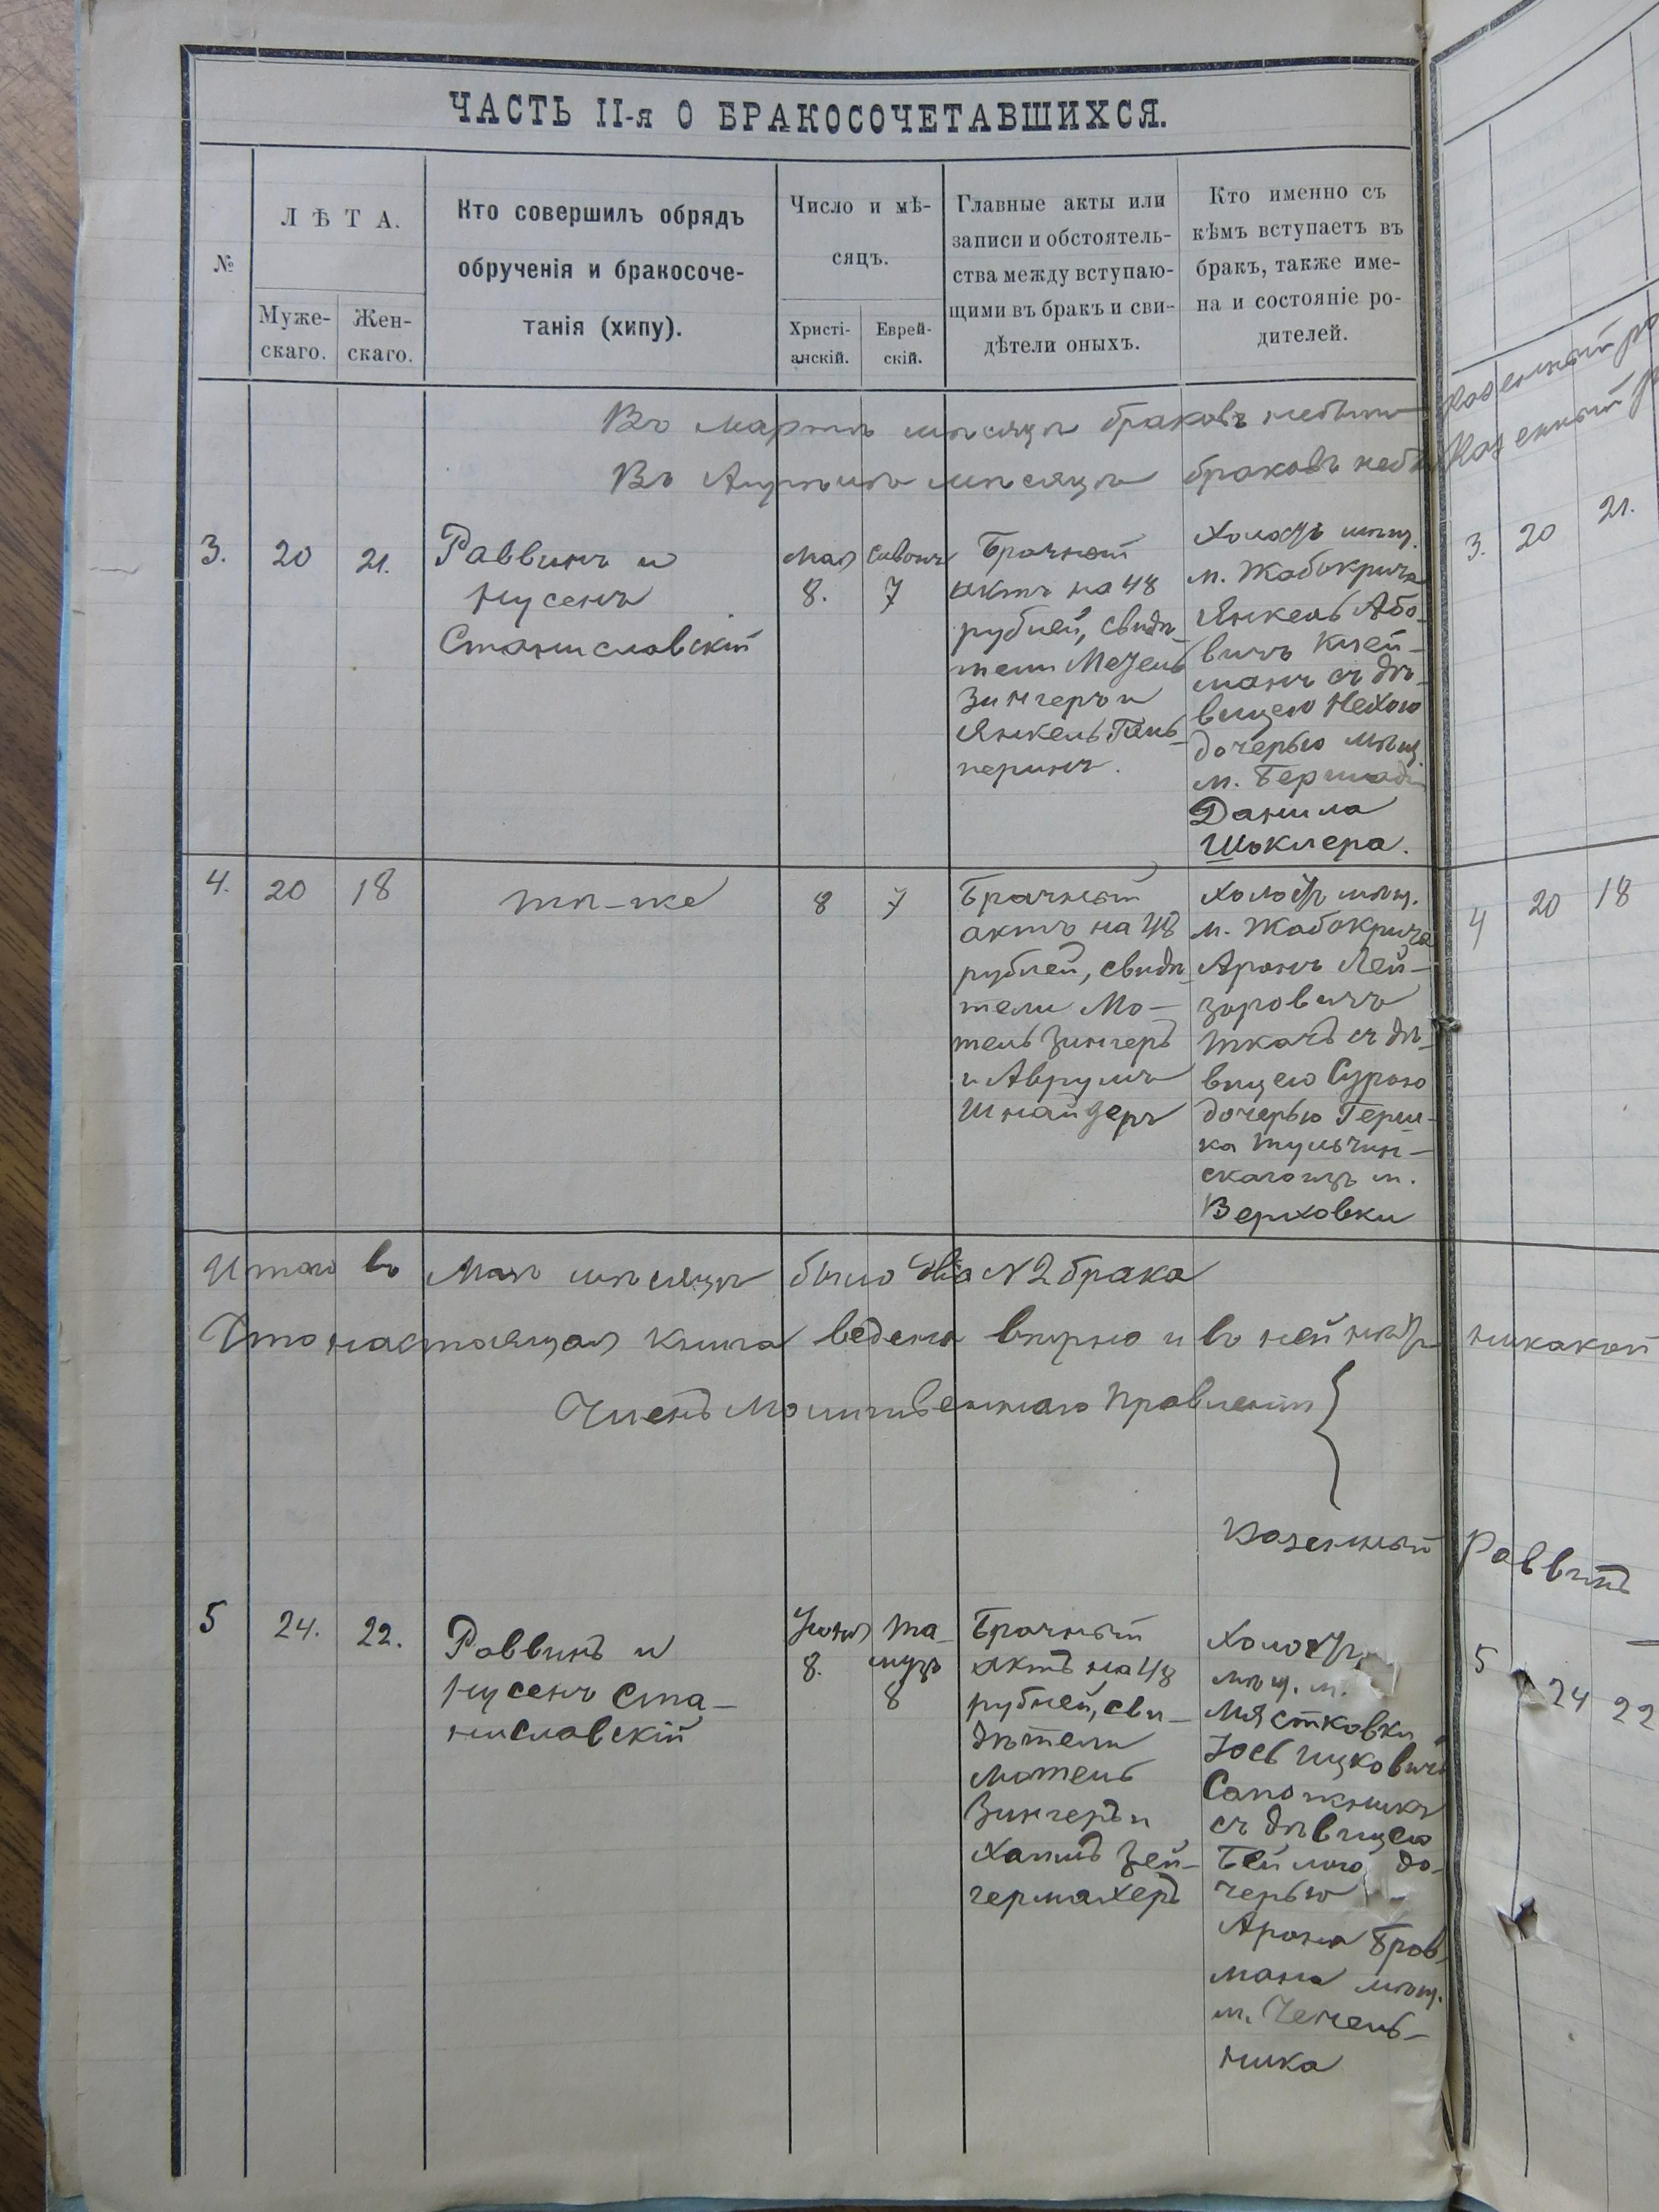 ЧАСТЬ II-я О БРАКОСОЧЕТАВШИХСЯ.
№
ЛѢТА.
Муже-
скаго.
Жен-
скаго.
Кто совершилъ обрядъ
обрученія и бракосоче-
танія (хипу).
Число и мѣ-
сяцъ.
Христі-
анскій.
Еврей-
скій.
Главные акты или
записи и обстоятель-
ства между вступаю-
щими въ бракъ и сви-
дѣтели оныхъ.
Кто именно съ
кѣмъ вступаетъ въ
бракъ, также име-
на и состояніе ро-
дителей.
Въ мартѣ мѣсяцѣ браковъ небыло
Въ Апрѣлѣ мѣсяцѣ браковъ небы
Казенный ра
Казенный р
3.
20
21.
Раввинъ и
Нусенъ
Станиславскій
Мая
8.
Сивонъ
7
Брачный
актъ на 48
рублей, свидѣ-
тели
Зингеръ и
Янкель Галь-
перинъ.
Холостъ мѣщ.
м. Жабокрича
Янкель Або-
вичъ Клей-
манъ съ дѣ-
вицею Нехою
дочерью мѣщ.
м. Бершади
Данила
Шкклера.
3. 20 21.
4.
20
18
то-же
8
7
Брачный
актъ на 48
рублей, свидѣ-
тели Мо-
тель Зингеръ
и Аврумъ
Шнайдеръ
Холостъ мѣщ.
м. Жабокрича
Аронъ Лей-
зоровичъ
Ткачъ съ дѣ-
вицею Сурою
дочерью Герш-
ка Тульчин-
скаго изъ м.
Верховки
4 20 18
Итого въ Маѣ мѣсяцѣ было два N 2 брака
Что настоящая книга ведена вѣрно и въ ней нѣтъ никакой
Членъ Молитвеннаго Правленія
Казенный Раввинъ
5
24.
22.
Раввинъ и
Нусенъ Ста-
ниславскій
Июня
8.
Та-
музъ
8
Брачный
актъ на 48
рублей, сви-
дѣтели
Мотель
Зингеръ и
Хаимъ Зей-
гермахеръ
Холостъ
мѣщ. м.
Мястковки
Іось Ицковичъ
Сапожникъ
съ дѣвицею
Бейлою до-
черью
Арона Бров-
мана мѣщ.
м. Чечель-
ника
5 24 22